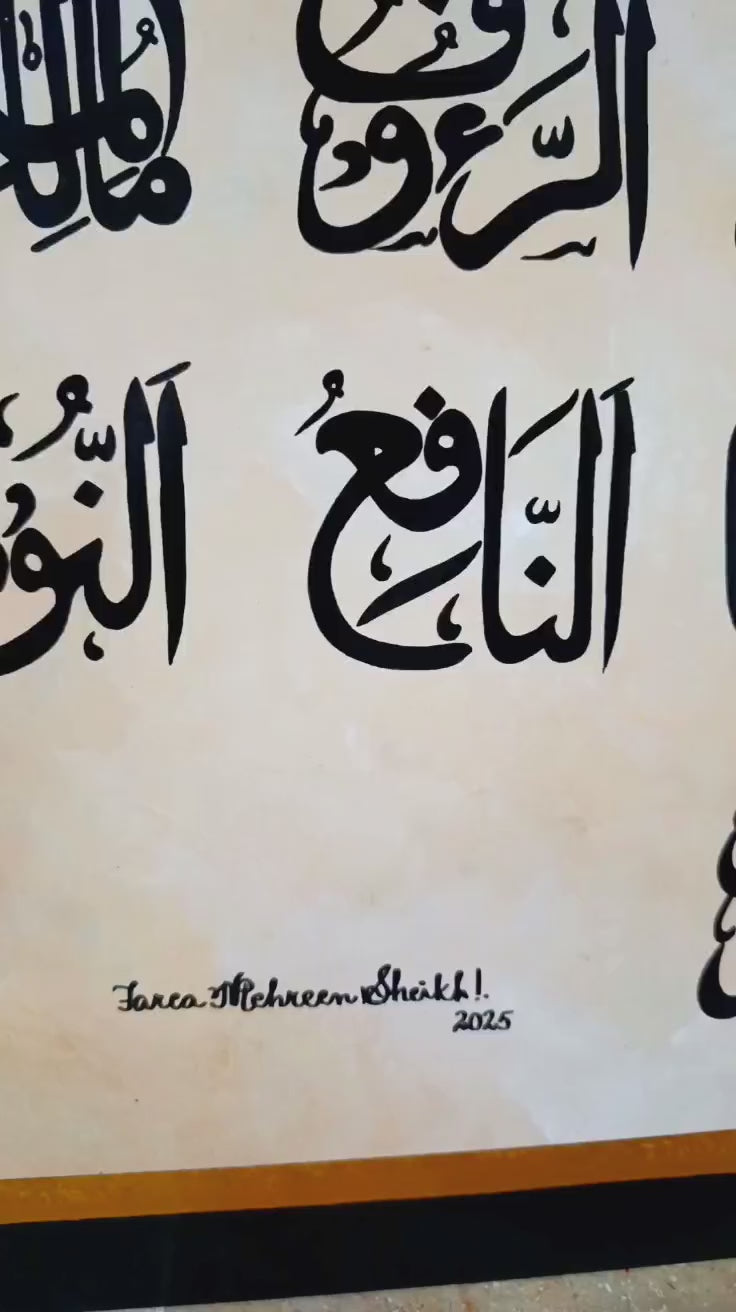 الرَّءُوفُ
النَّافِعُ النُّو
Farea Mehreen Sheikh!.
2025